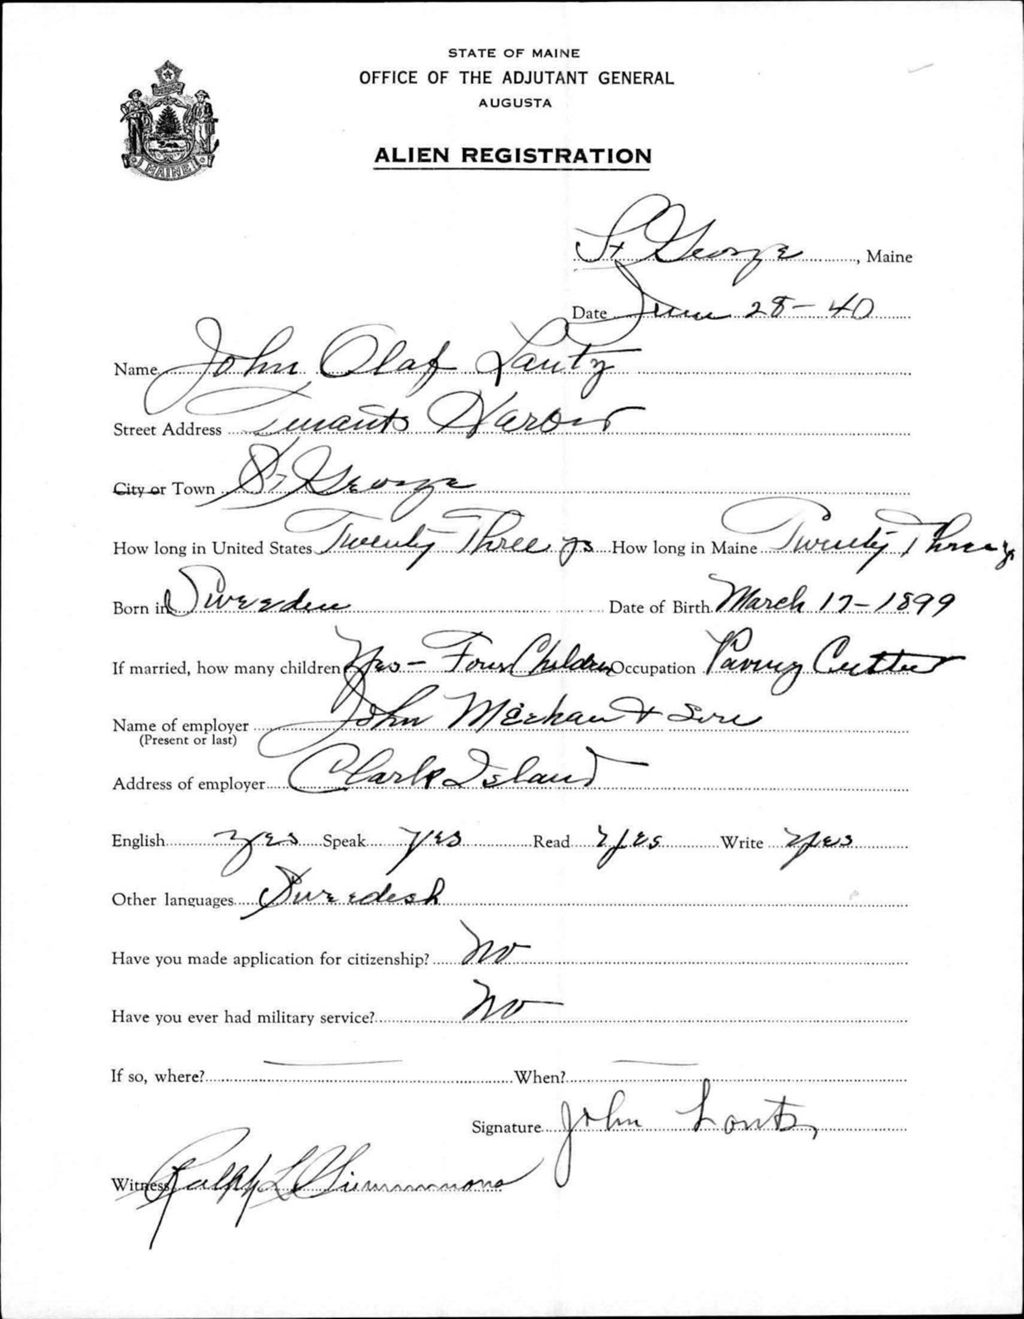 STATE OF MAINE
OFFICE OF THE ADJUTANT GENERAL
AUGUSTA
ALIEN REGISTRATION
MAINE
St George, Maine
Date June 28-40
Name John Olaf Lantz
Street Address Tenants Harbor
City or Town St George
How long in United States Twenty Three yrs How long in Maine Twenty Three
Born in Sweeden Date of Birth March 17-1899
If married, how many children Yes - Four Children Occupation Paving Cutter
Name of employer John Meehan & Son
(Present or last)
Address of employer Clark Island
English yes Speak yes Read yes Write yes
Other languages Sweedesh
Have you made application for citizenship? No
Have you ever had military service? No
If so, where? When?
Signature John Lantz
Witness Ralph L Simmmons